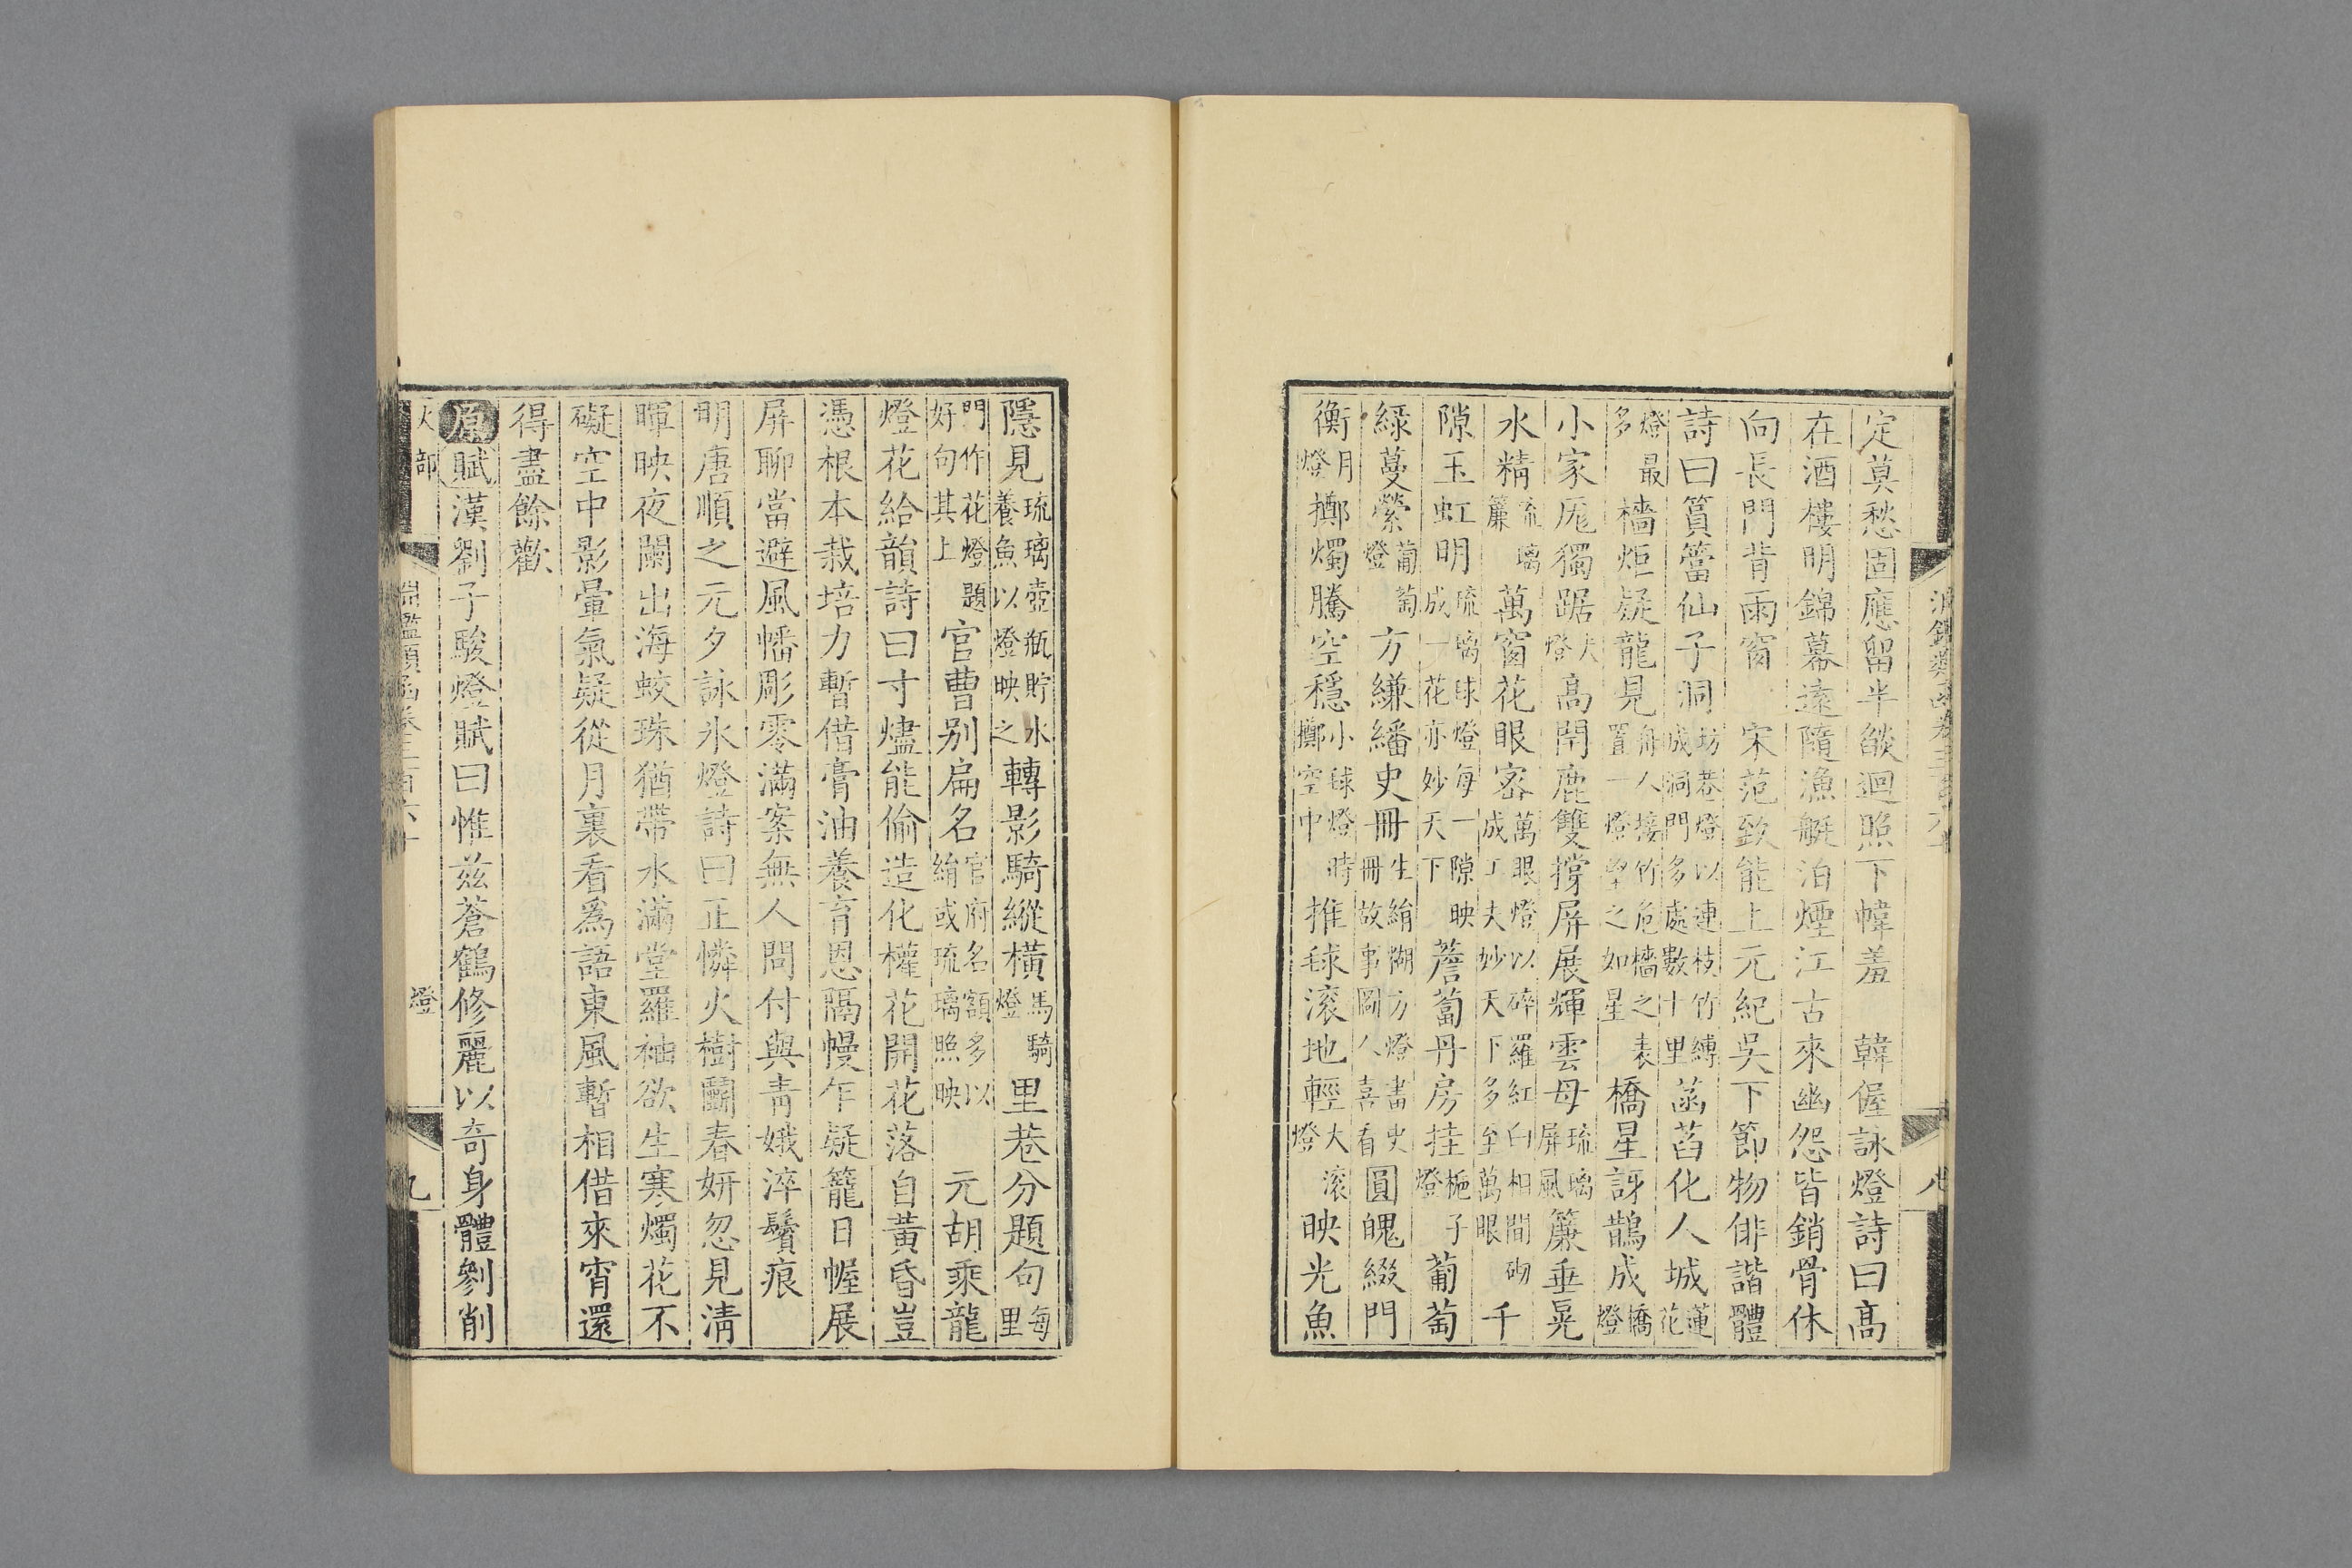 定莫愁固應留半燄迴照下幃羞　韓偓詠燈詩曰高
在酒樓明錦幕遠隨漁艇泊煙江古來幽怨皆銷骨休
向長門背雨窗　宋范致能上元紀吳下節物俳諧體
詩曰篔簹仙子洞坊巷燈以連枝竹縛成洞門多處數十里菡萏化人城蓮花
燈最多檣炬疑龍見舟人接竹危檣之表置一燈望之如星橋星訝鵲成橋燈
小家厖獨踞犬燈高閈鹿雙撐屏展輝雲母琉璃屏風簾垂晃
水精琉璃簾萬窗花眼密萬眼燈以碎羅紅白相間砌成工夫妙天下多至萬眼千
隙玉虹明琉璃球燈每一隙映成一花亦妙天下薝蔔丹房挂梔子燈葡萄
綠蔓縈葡萄燈方縑繙史冊生絹糊方燈畫史冊故事圖人喜看圓魄綴門
衡月燈擲燭騰空穩小球燈時擲空中推毬滚地輕大滚燈映光魚
隱見琉璃壺瓶貯水養魚以燈映之轉影騎縱橫馬騎燈里巷分題句每里
門作花燈題好句其上官曹別扁名官府名額多以絹或琉璃照映　元胡乘龍
燈花給韻詩曰寸燼能偷造化權花開花落自黃昏豈
憑根本栽培力暫借膏油養育恩隔幔乍疑籠日幄展
屏聊當避風幡彫零滿案無人問付與青娥淬鬢痕
明唐順之元夕詠氷燈詩曰正憐火樹鬬春妍忽見清
暉映夜闌出海蛟珠猶帶水滿堂羅袖欲生寒燭花不
礙空中影暈氣疑從月裏看爲語東風暫相借來宵還
得盡餘歡
原賦漢劉子駿燈賦曰惟茲蒼鶴修麗以奇身體剜削
火部
淵鑑類函卷三百六十
燈
九